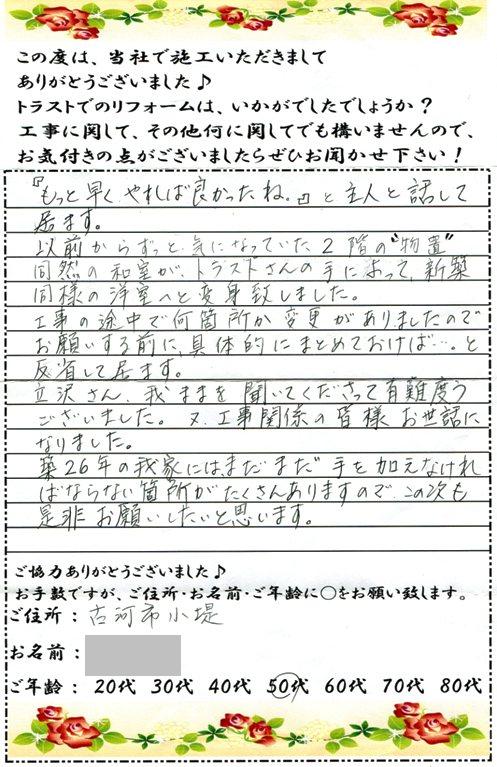 この度は、当社で施工いただきまして
ありがとうございました♪
トラストでのリフォームは、いかがでしたでしょうか？
工事に関して、その他何に関してでも構いませんので、
お気付きの点がございましたらぜひお聞かせ下さい！
『もっと早くやれば良かったね。』と主人と話して
居ます。
以前からずっと気になっていた2階の"物置"
同然の和室が、トラストさんの手によって、新築
同様の洋室へと変身致しました。
工事の途中で何箇所か変更がありましたので
お願いする前に、具体的にまとめておけば…。と
反省して居ます。
立沢さん、我がままを聞いてくださって有難度う
ございました。又、工事関係の皆様お世話に
なりました。
築26年の我家には、まだまだ手を加えなけれ
ばならない箇所がたくさんありますので、この次も
是非お願いしたいと思います。
ご協力ありがとうございました♪
お手数ですが、ご住所・お名前・ご年齢に○をお願い致します。
ご住所：古河市小堤
お名前：
ご年齢： 20代 30代 40代 50代 60代 70代 80代